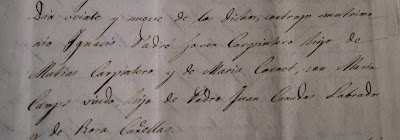 Dia veinte y nueve de los dichos, contrajo matrimo
nio Ignacio Padró joven Carpintero hijo de
Matias Carpintero y de Maria Cornet, con Maria
Camps viuda hija de Pedro Juan Labrador
y de Rosa Cañellas.